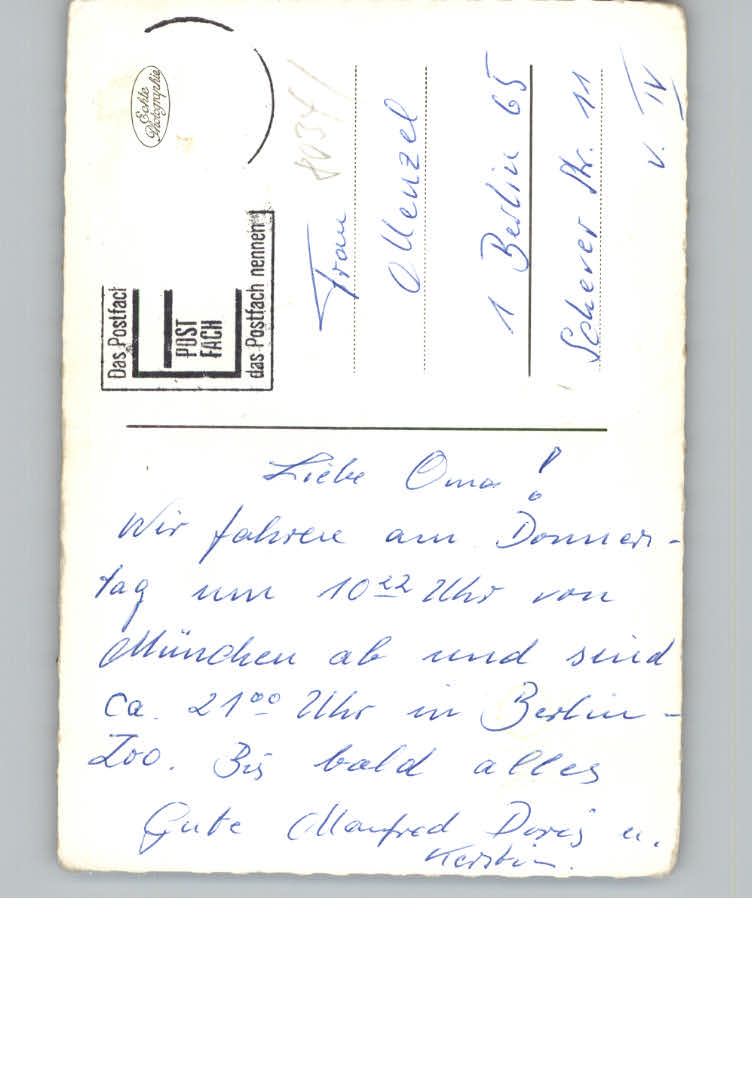 Echte
Photographie
Das Postfach
POST
FACH
das Postfach nennen
8034/
Frau
Menzel
1 Berlin 65
Scherer Str. 11
v. IV
Liebe Oma!
Wir fahren am Donners-
tag um 10 22 Uhr von
München ab und sind
ca. 21 00 Uhr in Berlin-
Zoo. Bis bald alles
Gute Manfred Doris u.
Kerstin.